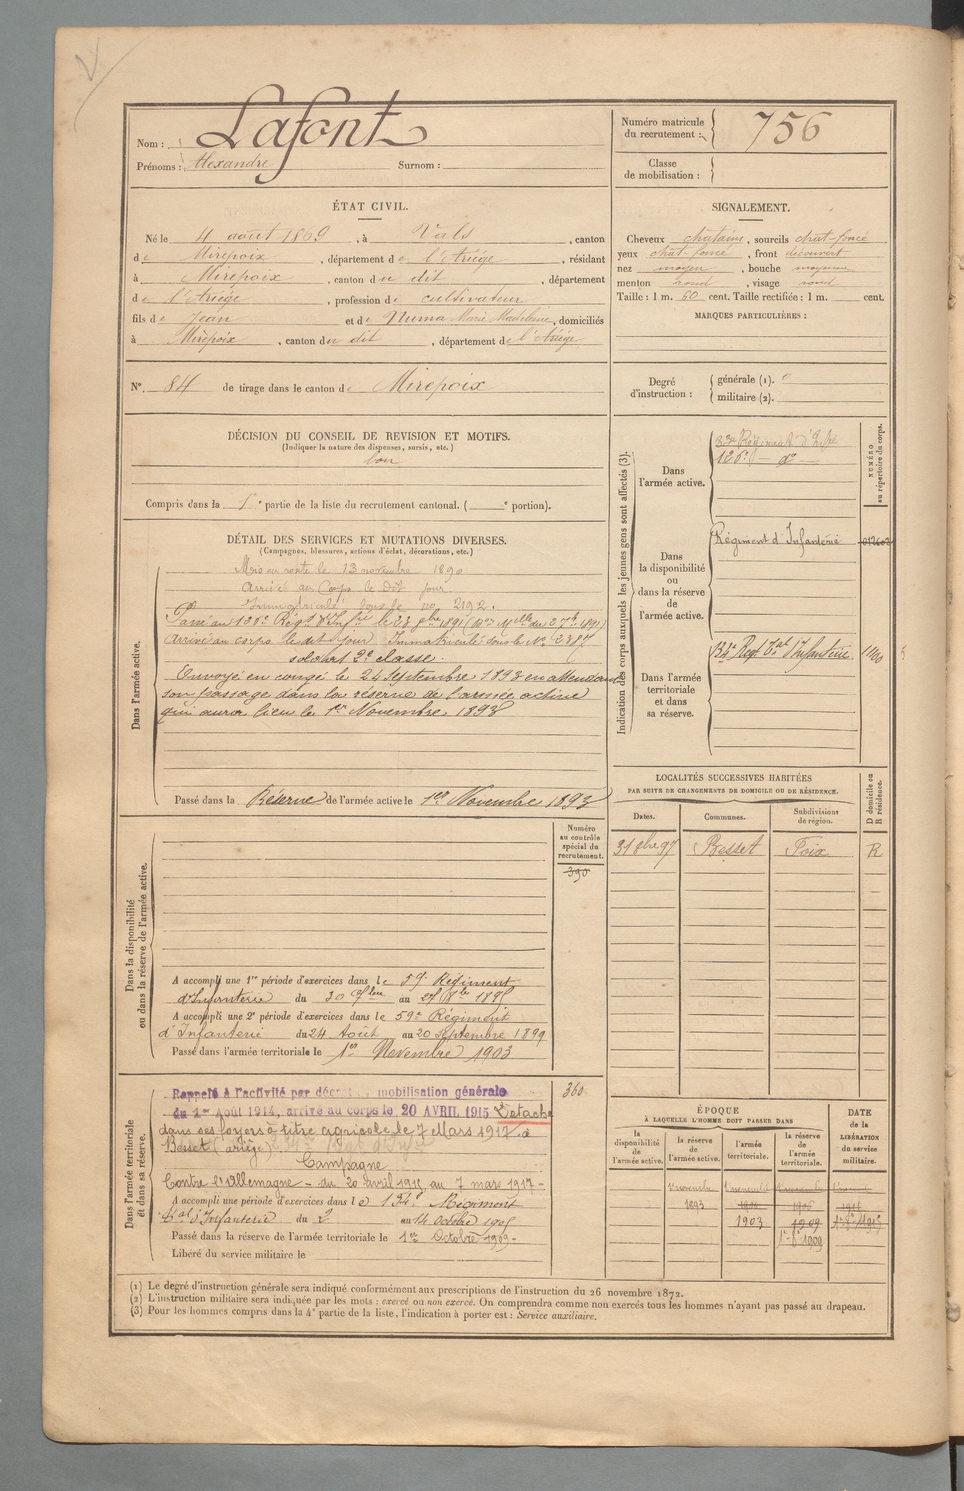 Nom : Lafont
Prénoms : Alexandre Surnom :
Numéro matricule du recrutement : 756
Classe de mobilisation :
ÉTAT CIVIL.
Né le 4 août 1869, à Vals, canton
de Mirepoix, département de l'Ariège, résidant
à Mirepoix, canton du dit, département
de l'Ariège, profession de cultivateur
fils de Jean et de Numa Marie Madeleine, domiciliés
à Mirepoix, canton du dit, département de l'Ariège
N° 84 de tirage dans le canton de Mirepoix
SIGNALEMENT.
Cheveux chatains, sourcils chat-foncé
yeux chat-foncé, front découvert
nez moyen, bouche moyenne
menton rond, visage rond
Taille : 1 m. 60 cent. Taille rectifiée : 1 m. cent.
MARQUES PARTICULIÈRES :
Degré d'instruction : générale (1).
militaire (2).
DÉCISION DU CONSEIL DE REVISION ET MOTIFS.
(Indiquer la nature des dispenses, sursis, etc.)
bon
Compris dans la 1e partie de la liste du recrutement cantonal. ( e portion).
DÉTAIL DES SERVICES ET MUTATIONS DIVERSES.
(Campagnes, blessures, actions d'éclat, décorations, etc.)
Dans l'armée active.
Mis en route le 13 novembre 1890
Arrivé au Corps le dit jour
Immatriculé sous le no 2192.
Passé au 126e Régt d'Infrie le 23 8bre 1891
arrivé au corps le dit jour. Immatriculé sous le No 2387
soldat 2e classe.
Envoyé en congé le 24 Septembre 1893 en attendant
son passage dans la réserve de l'armée active
qui aura lieu le 1er Novembre 1893
Passé dans la Réserve de l'armée active le 1er Novembre 1893
Indication des corps auxquels les jeunes gens sont affectés (3).
NUMÉRO au répertoire du corps.
Dans l'armée active.
Régiment d'Infie
126e — do —
Dans la disponibilité ou dans la réserve de l'armée active.
Régiment d'Infanterie
Dans l'armée territoriale et dans sa réserve.
Regt Tal d'Infanterie 1100
LOCALITÉS SUCCESSIVES HABITÉES
PAR SUITE DE CHANGEMENTS DE DOMICILE OU DE RÉSIDENCE.
D domicile ou R résidence.
Dates. Communes. Subdivisions de région.
31 8bre 97 Besset Foix R
Dans la disponibilité ou dans la réserve de l'armée active.
Numéro au contrôle spécial du recrutement.
390
A accompli une 1re période d'exercices dans le 59e Régiment
d'Infanterie du 30 7bre au 27 8bre 1895
A accompli une 2e période d'exercices dans le 59e Régiment
d'Infanterie du 24 Août au 20 Septembre 1899
Passé dans l'armée territoriale le 1er Novembre 1903
Dans l'armée territoriale et dans sa réserve.
360
Rappelé à l'activité par décret mobilisation générale
du 1er Août 1914, arrivé au corps le 20 AVRIL 1915 Détaché
dans ses foyers à titre agricole le 7 Mars 1917 à
Besset (Ariège)
Campagne
Contre l'Allemagne - du 20 avril 1915 au 7 mars 1917 -
A accompli une période d'exercices dans le 132e Régiment
Tal d'Infanterie du 2 au 14 octobre 1905
Passé dans la réserve de l'armée territoriale le 1er Octobre 1909 -
Libéré du service militaire le
ÉPOQUE
À LAQUELLE L'HOMME DOIT PASSER DANS
DATE de la LIBÉRATION du service militaire.
la disponibilité de l'armée active. la réserve de l'armée active. l'armée territoriale. la réserve de l'armée territoriale.
1er novembre
1893
1903 1909
1909
(1) Le degré d'instruction générale sera indiqué conformément aux prescriptions de l'instruction du 26 novembre 1872.
(2) L'instruction militaire sera indiquée par les mots : exercé ou non exercé. On comprendra comme non exercés tous les hommes n'ayant pas passé au drapeau.
(3) Pour les hommes compris dans la 4e partie de la liste, l'indication à porter est : Service auxiliaire.